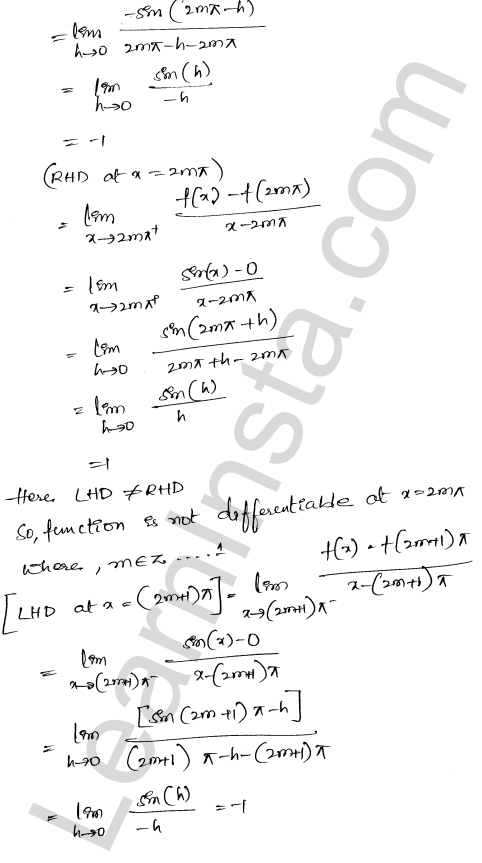 = lim h→0 -sin(2mπ-h) / 2mπ-h-2mπ
= lim h→0 sin(h) / -h
= -1
(RHD at x = 2mπ)
= lim x→2mπ⁺ f(x) - f(2mπ) / x-2mπ
= lim x→2mπ⁺ sin(x) - 0 / x-2mπ
= lim h→0 sin(2mπ+h) / 2mπ+h-2mπ
= lim h→0 sin(h) / h
=1
Here LHD ≠ RHD
So, function is not differentiable at x=2mπ
where, m∈Z .....1
[LHD at x = (2m+1)π] = lim x→(2m+1)π⁻ f(x) - f(2m+1)π / x-(2m+1)π
= lim x→(2m+1)π⁻ sin(x)-0 / x-(2m+1)π
= lim h→0 [sin(2m+1)π-h] / (2m+1)π-h-(2m+1)π
= lim h→0 sin(h) / -h = -1
LearnInsta.com